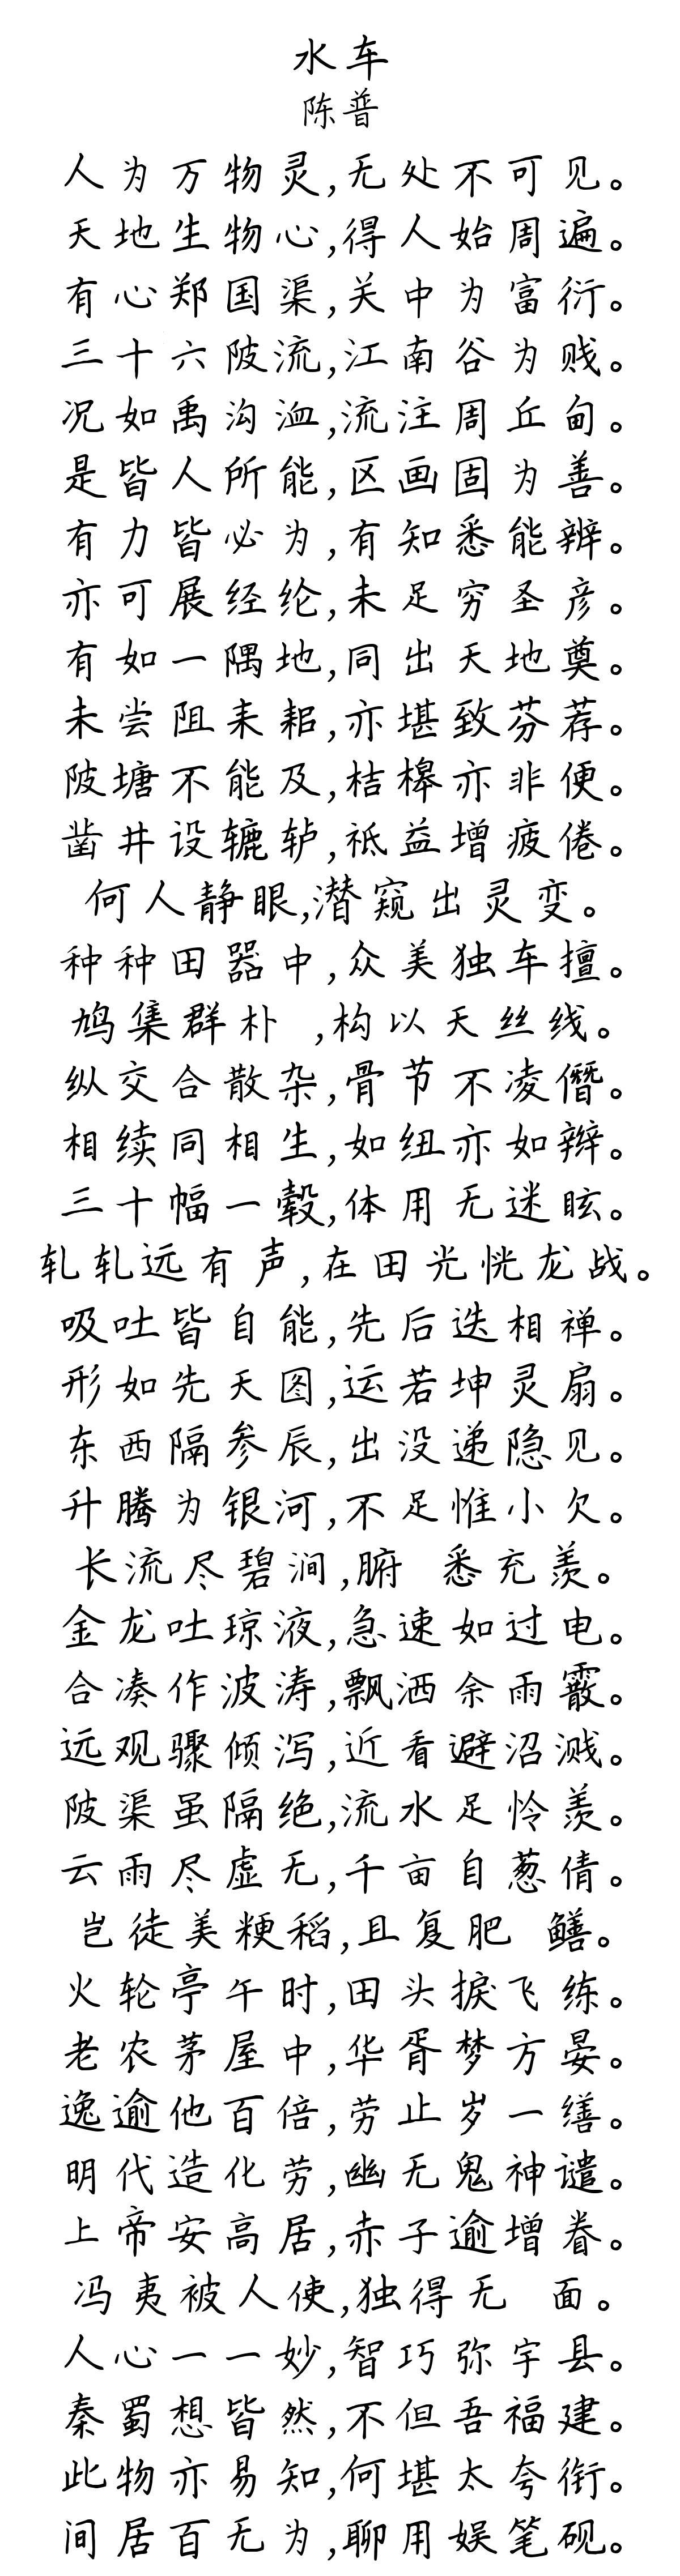 水车
陈普
人为万物灵,无处不可见。
天地生物心,得人始周遍。
有心郑国渠,关中为富衍。
三十六陂流,江南谷为贱。
况如禹沟洫,流注周丘甸。
是皆人所能,区画固为善。
有力皆必为,有知悉能辨。
亦可展经纶,未足穷圣彦。
有如一隅地,同出天地奠。
未尝阻耒耜,亦堪致芬荐。
陂塘不能及,桔槔亦非便。
凿井设辘轳,祗益增疲倦。
何人静眼,潜窥出灵变。
种种田器中,众美独车擅。
鸠集群朴 ,构以天丝线。
纵交合散杂,骨节不凌僭。
相续同相生,如纽亦如辫。
三十幅一毂,体用无迷眩。
轧轧远有声,在田光恍龙战。
吸吐皆自能,先后迭相禅。
形如先天图,运若坤灵扇。
东西隔参辰,出没递隐见。
升腾为银河,不足惟小欠。
长流尽碧涧,腑 悉充羡。
金龙吐琼液,急速如过电。
合凑作波涛,飘洒余雨霰。
远观骤倾泻,近看避沼溅。
陂渠虽隔绝,流水足怜羡。
云雨尽虚无,千亩自葱倩。
岂徒美粳稻,且复肥 鳝。
火轮亭午时,田头捩飞练。
老农茅屋中,华胥梦方晏。
逸逾他百倍,劳止岁一缮。
明代造化劳,幽无鬼神谴。
上帝安高居,赤子逾增眷。
冯夷被人使,独得无 面。
人心一一妙,智巧弥宇县。
秦蜀想皆然,不但吾福建。
此物亦易知,何堪太夸衒。
间居百无为,聊用娱笔砚。